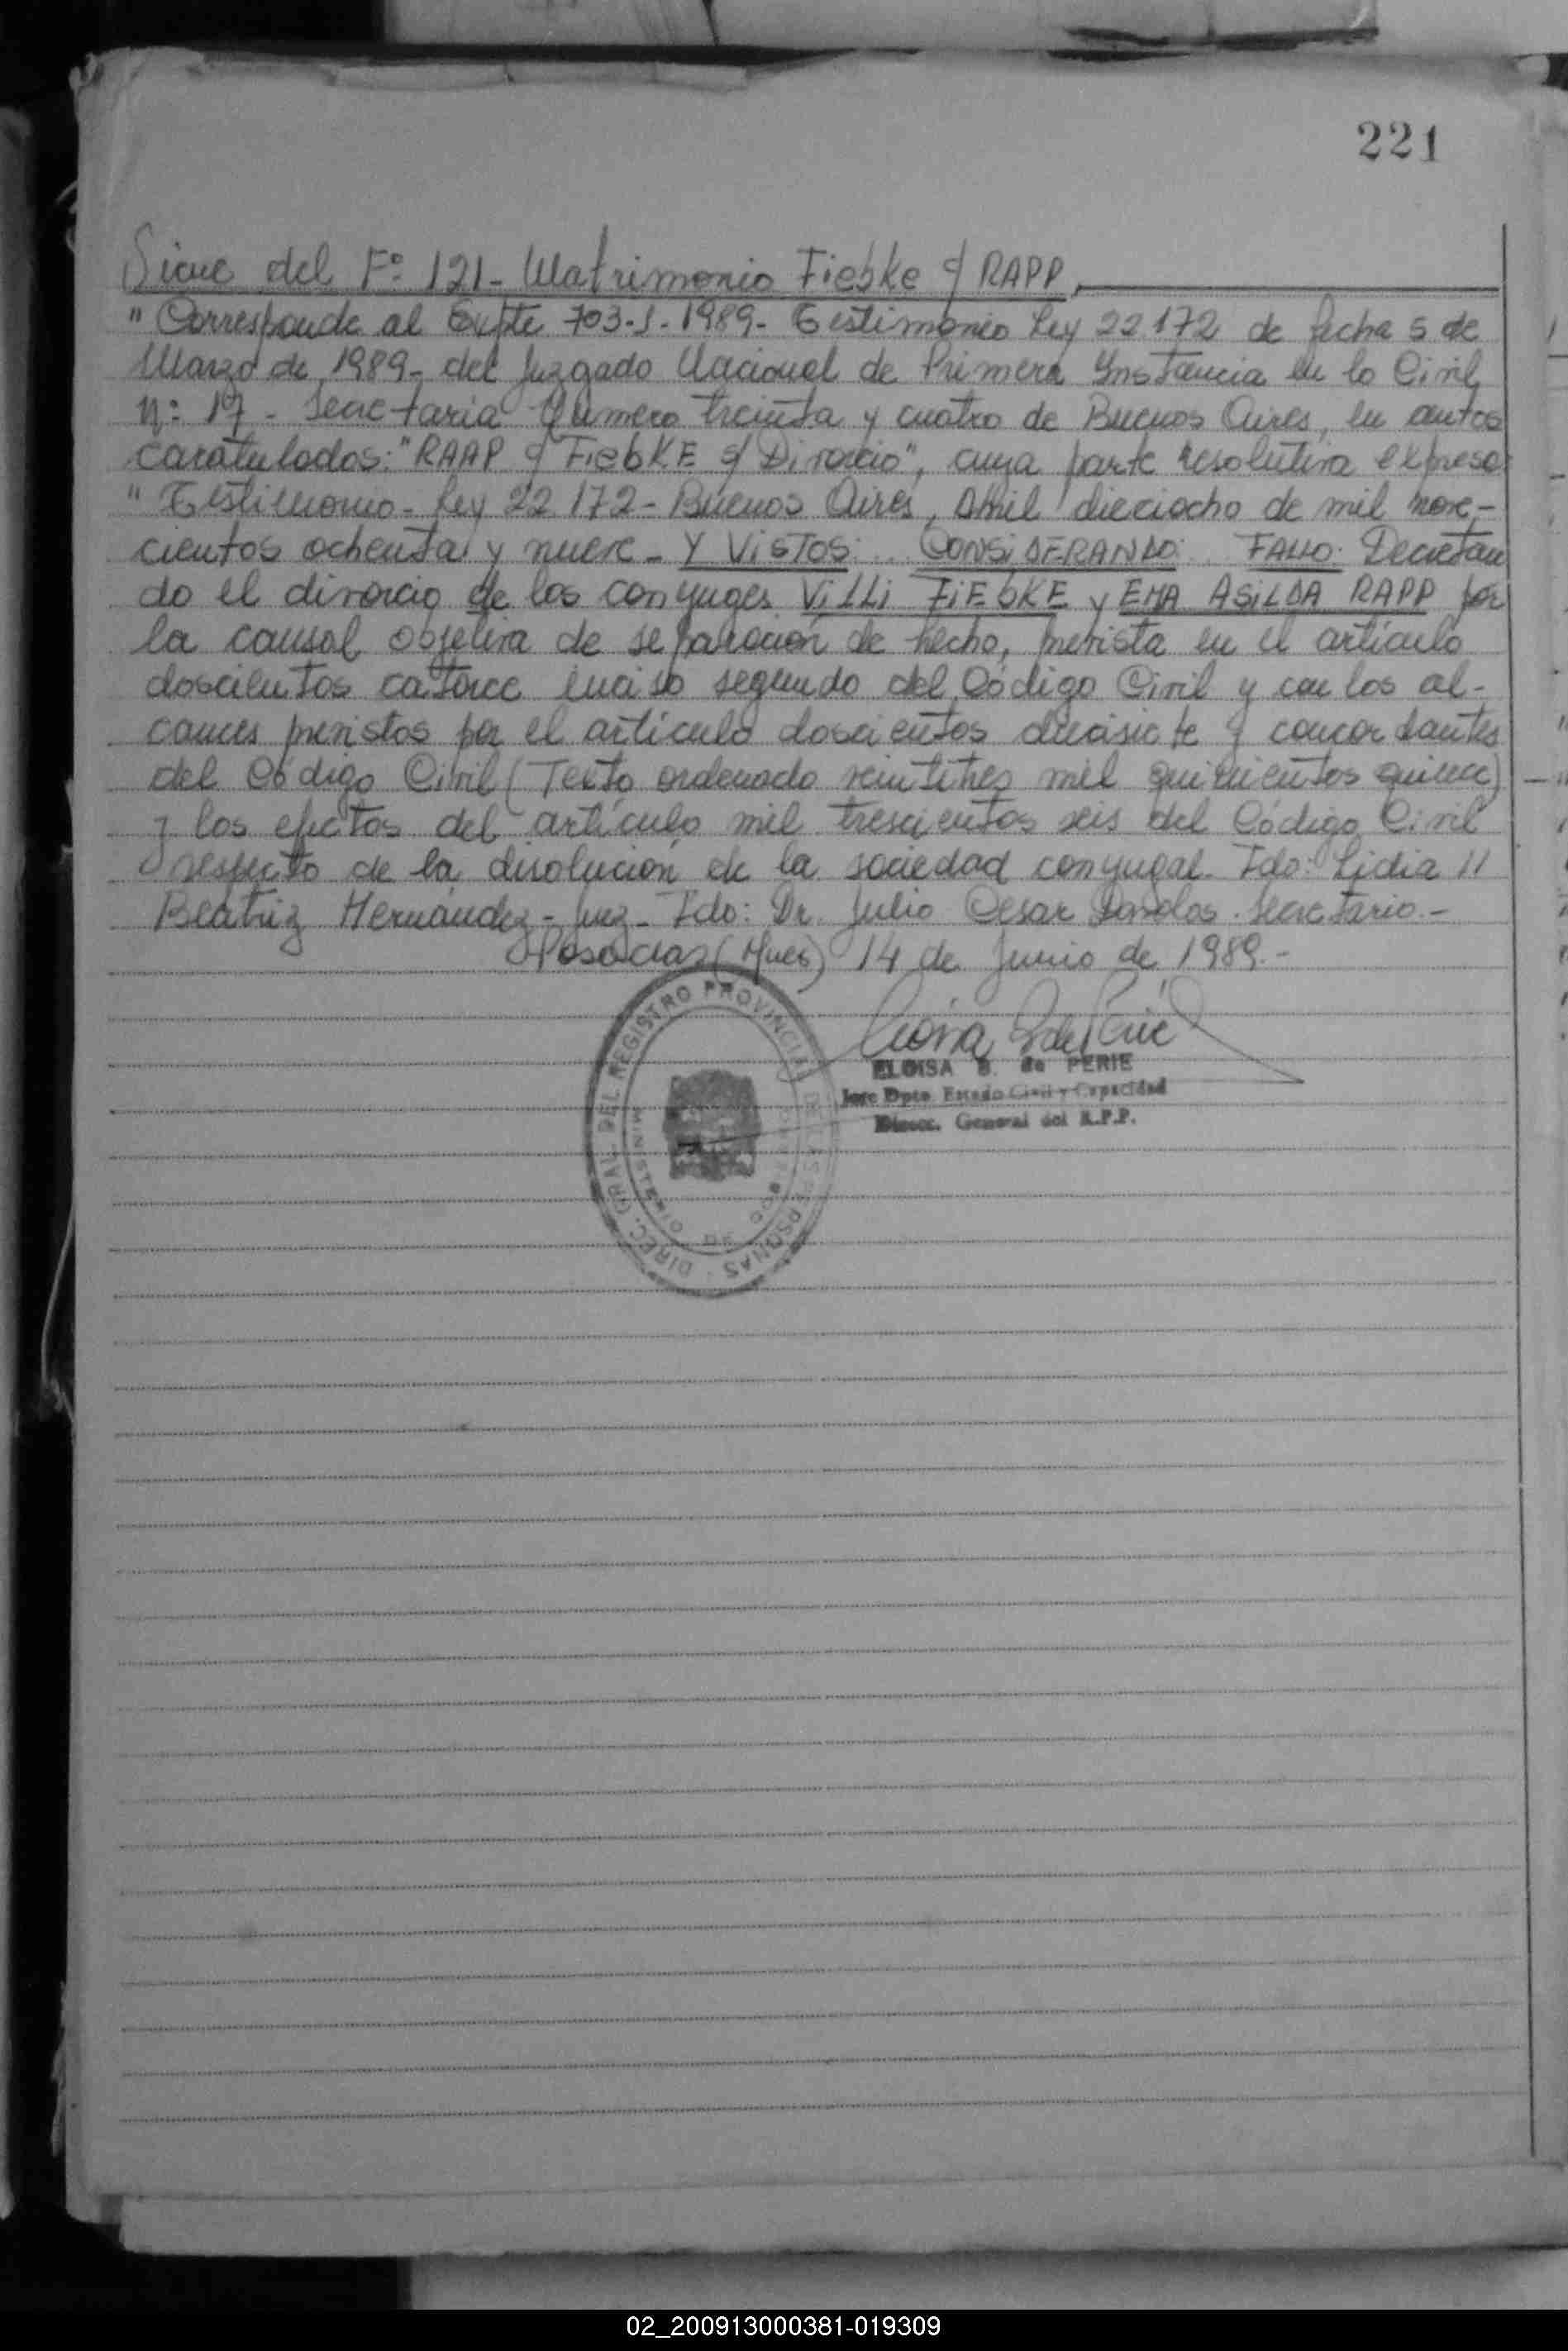 221
Sigue del Fº 121 - Matrimonio Fiebke c/ RAPP,
"Corresponde al Expte 703-J-1989- Testimonio Ley 22.172 de fecha 5 de
Marzo de 1989- del Juzgado Nacional de Primera Instancia en lo Civil
nº 17 - Secretaria Número treinta y cuatro de Buenos Aires, en autos
caratulados: "RAAP c/ FiebKE s/ Divorcio", cuya parte resolutiva expresa:
"Testimonio- Ley 22.172- Buenos Aires, Abril dieciocho de mil nove-
cientos ochenta y nueve - Y ViSTOS: .. CONSiDERANDO: .. FALLO: Decretan
do el divorcio de los conyuges ViLLi FiEbKE y EMA ASiLDA RAPP por
la causal objetiva de separación de hecho, prevista en el artículo
doscientos catorce inciso segundo del Código Civil y con los al-
cances previstos por el artículo doscientos diecisiete y concordantes
del Código Civil (Texto ordenado veintitres mil quinientos quince)
y los efectos del artículo mil trescientos seis del Código Civil
respecto de la disolución de la sociedad conyugal. Fdo: Lidia //
Beatriz Hernández - Juez - Fdo: Dr. Julio Cesar Dávolos. Secretario.-
Posadas (Mnes) 14 de Junio de 1989.-
ELOISA B. de PERIE
Jefe Dpto. Estado Civil y Capacidad
Direcc. General del R.P.P.
DIREC. GRAL. DEL REGISTRO PROVINCIAL DE LAS PERSONAS
MINISTERIO DE GOBIERNO
02_200913000381-019309